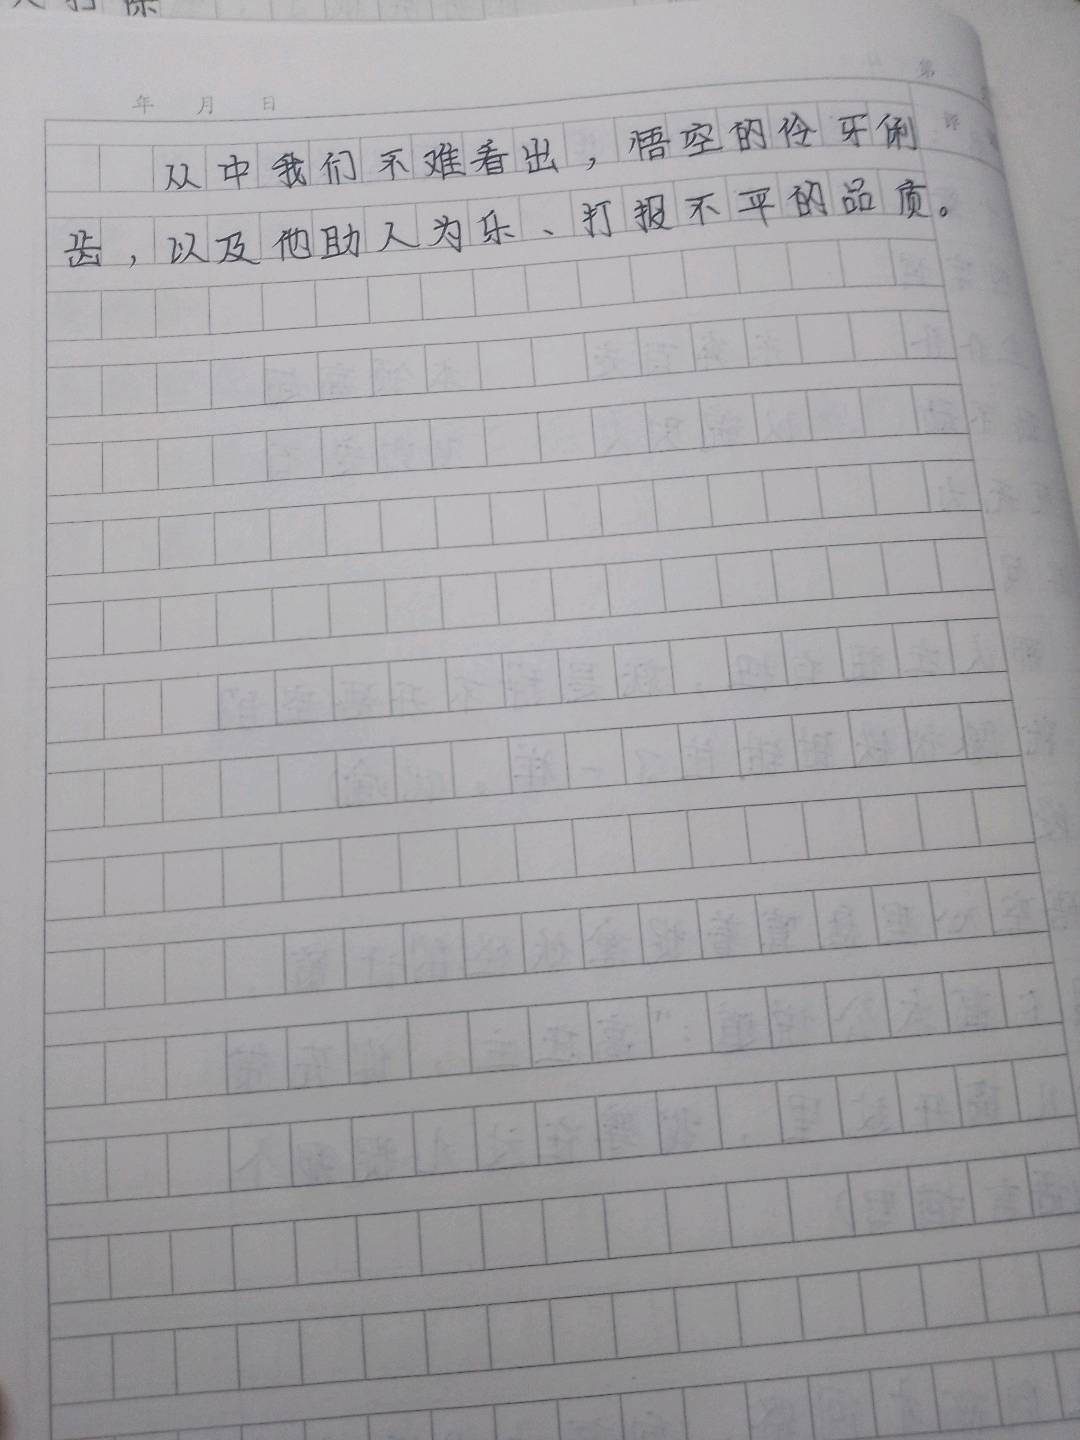 年 月 日
从中我们不难看出，悟空的伶牙俐
齿，以及他助人为乐、打报不平的品质。